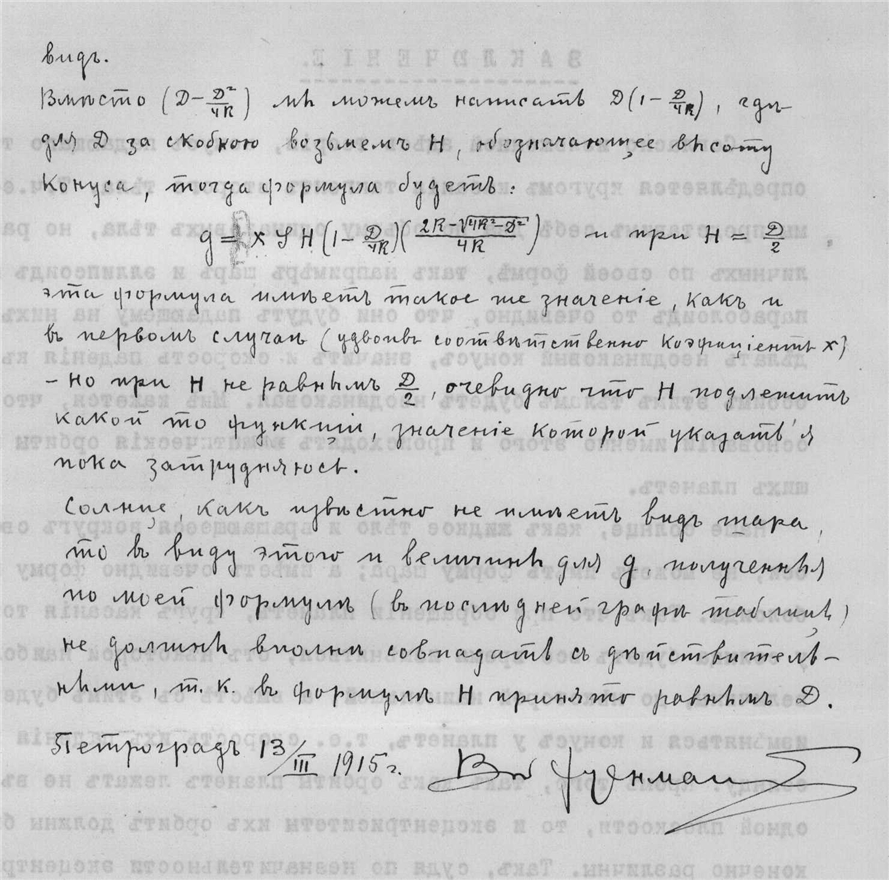 видъ.
Вмѣсто (D-D²/4R) мы можемъ написать D(1-D/4R), гдѣ
для D за скобкою возьмемъ H, обозначающее высоту
конуса, тогда формула будетъ:
g = x S H (1-D/4R)((2R-√4R²-D²)/4R) и при H = D/2
эта формула имѣетъ такое же значеніе, какъ и
въ первомъ случаѣ (удвоивъ соотвѣтственно коэфиціентъ x)
-но при H не равнымъ D/2, очевидно что H подлежитъ
какой то функціи, значеніе которой указать я
пока затрудняюсь.
Солнце, какъ извѣстно не имѣетъ видъ шара,
то въ виду этого и величины для g, полученныя
по моей формулѣ (въ послѣдней графѣ таблицы)
не должны вполнѣ совпадать съ дѣйствитель-
ными, т.к. въ формулѣ H принято равнымъ D.
Петроградъ 13/III 1915г.